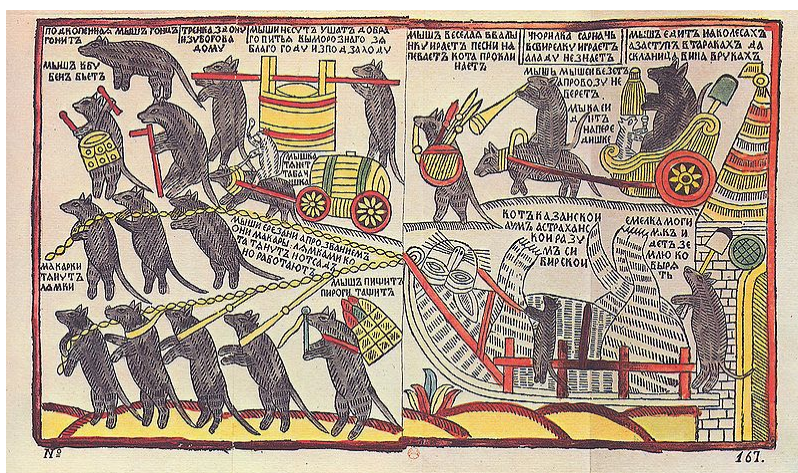 ПОДКОПЕННАЯ МЫШЪ ГОНЦЪ
ГОНИТЪ
ТРЕНКА ЗДОНУ
ИЗУБОГОВА
ДОМУ
МЫШИ НЕСУТЪ УШАТЪ ДОБРА
ГО ПИТЬЯ ВЫМОРОЗНАГО ЗА
БЛАГО ГОДУ ИЗ ПОД ЗАЛОДУ
МЫШЪ ВБУ
БЕНЪ БЬЕТЪ
МЫШКА
ТЯНТЪ
ТАБАЧ
МЫШЪ ВЕСЕЛАЯ ВВАЛЫ
НКУ ИГРАЕТЪ ПЕСНИ НА
ПЕВАЕТЪ КОТА ПРОКЛИ
НАЕТЪ
ЧЮРИЛКА САРНАЧЬ
ВСВИРЕЛКУ ИГРАЕТЪ
АЛАДУ НЕЗНАЕТЪ
МЫШЪ ЕДИТЪ НАКОЛЕСАХЪ
АЗАСТУПЪ ВТАРАКАХЪ ДА
СКЛЯНИЦА ВИНА ВРУКАХЪ
МЫШЬ МЫШЕИ ВЕЗЕТЪ
АПРОВОЗУ НЕ
БЕРЕТЪ
МЫКА СИ
ДИТЪ
НАПЕРЕ
ДИШКЕ
МЫШИ ЕРЕЗАНИ АПРОЗВАНИЕМЪ
ОНИ МАКАРЫ ДАМКАМИ КО
ТА ТАНУТЪ
НО РАБОТАЮТЪ
МАКАРКИ
ТАНУТЪ
ЛАМКИ
МЫШЪ ПИЩИТЪ
ПИРОГИ ТАЩИТЪ
КОТЪ КАЗАНСКОИ
АУМЪ АСТРАХАНС
КОИ РАЗУ
МЪ СИ
БИРСКОИ
ЕМЕЛКА МОГИ
ЛАКЪ И
ДЕТЪ ЗЕ
МЛЮ КО
ВЫРЯ
ТЬ
№
167.